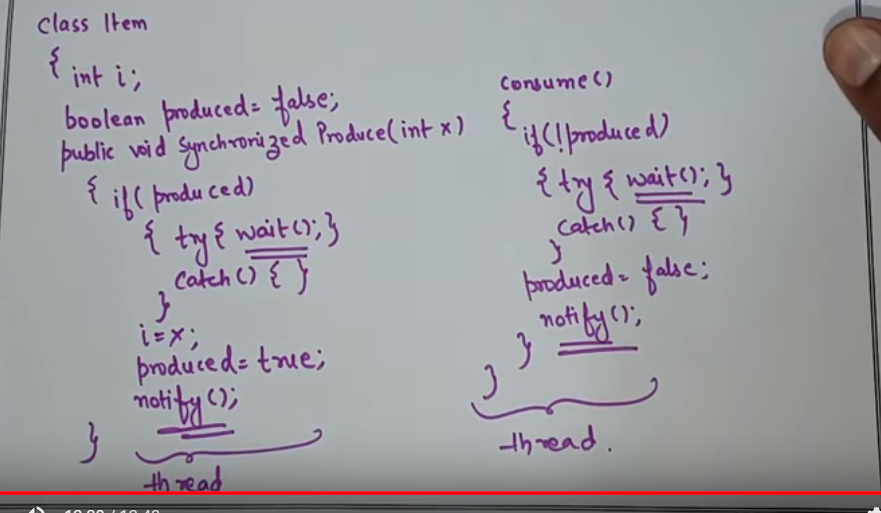 class Item
{
int i;
boolean produced= false;
public void synchronized Produce(int x)
{ if( produced)
{ try{ wait(); }
catch() { }
}
i=x;
produced= true;
notify();
}
thread
consume()
{
if(!produced)
{ try { wait(); }
catch() { }
}
produced= false;
notify();
}
}
thread.